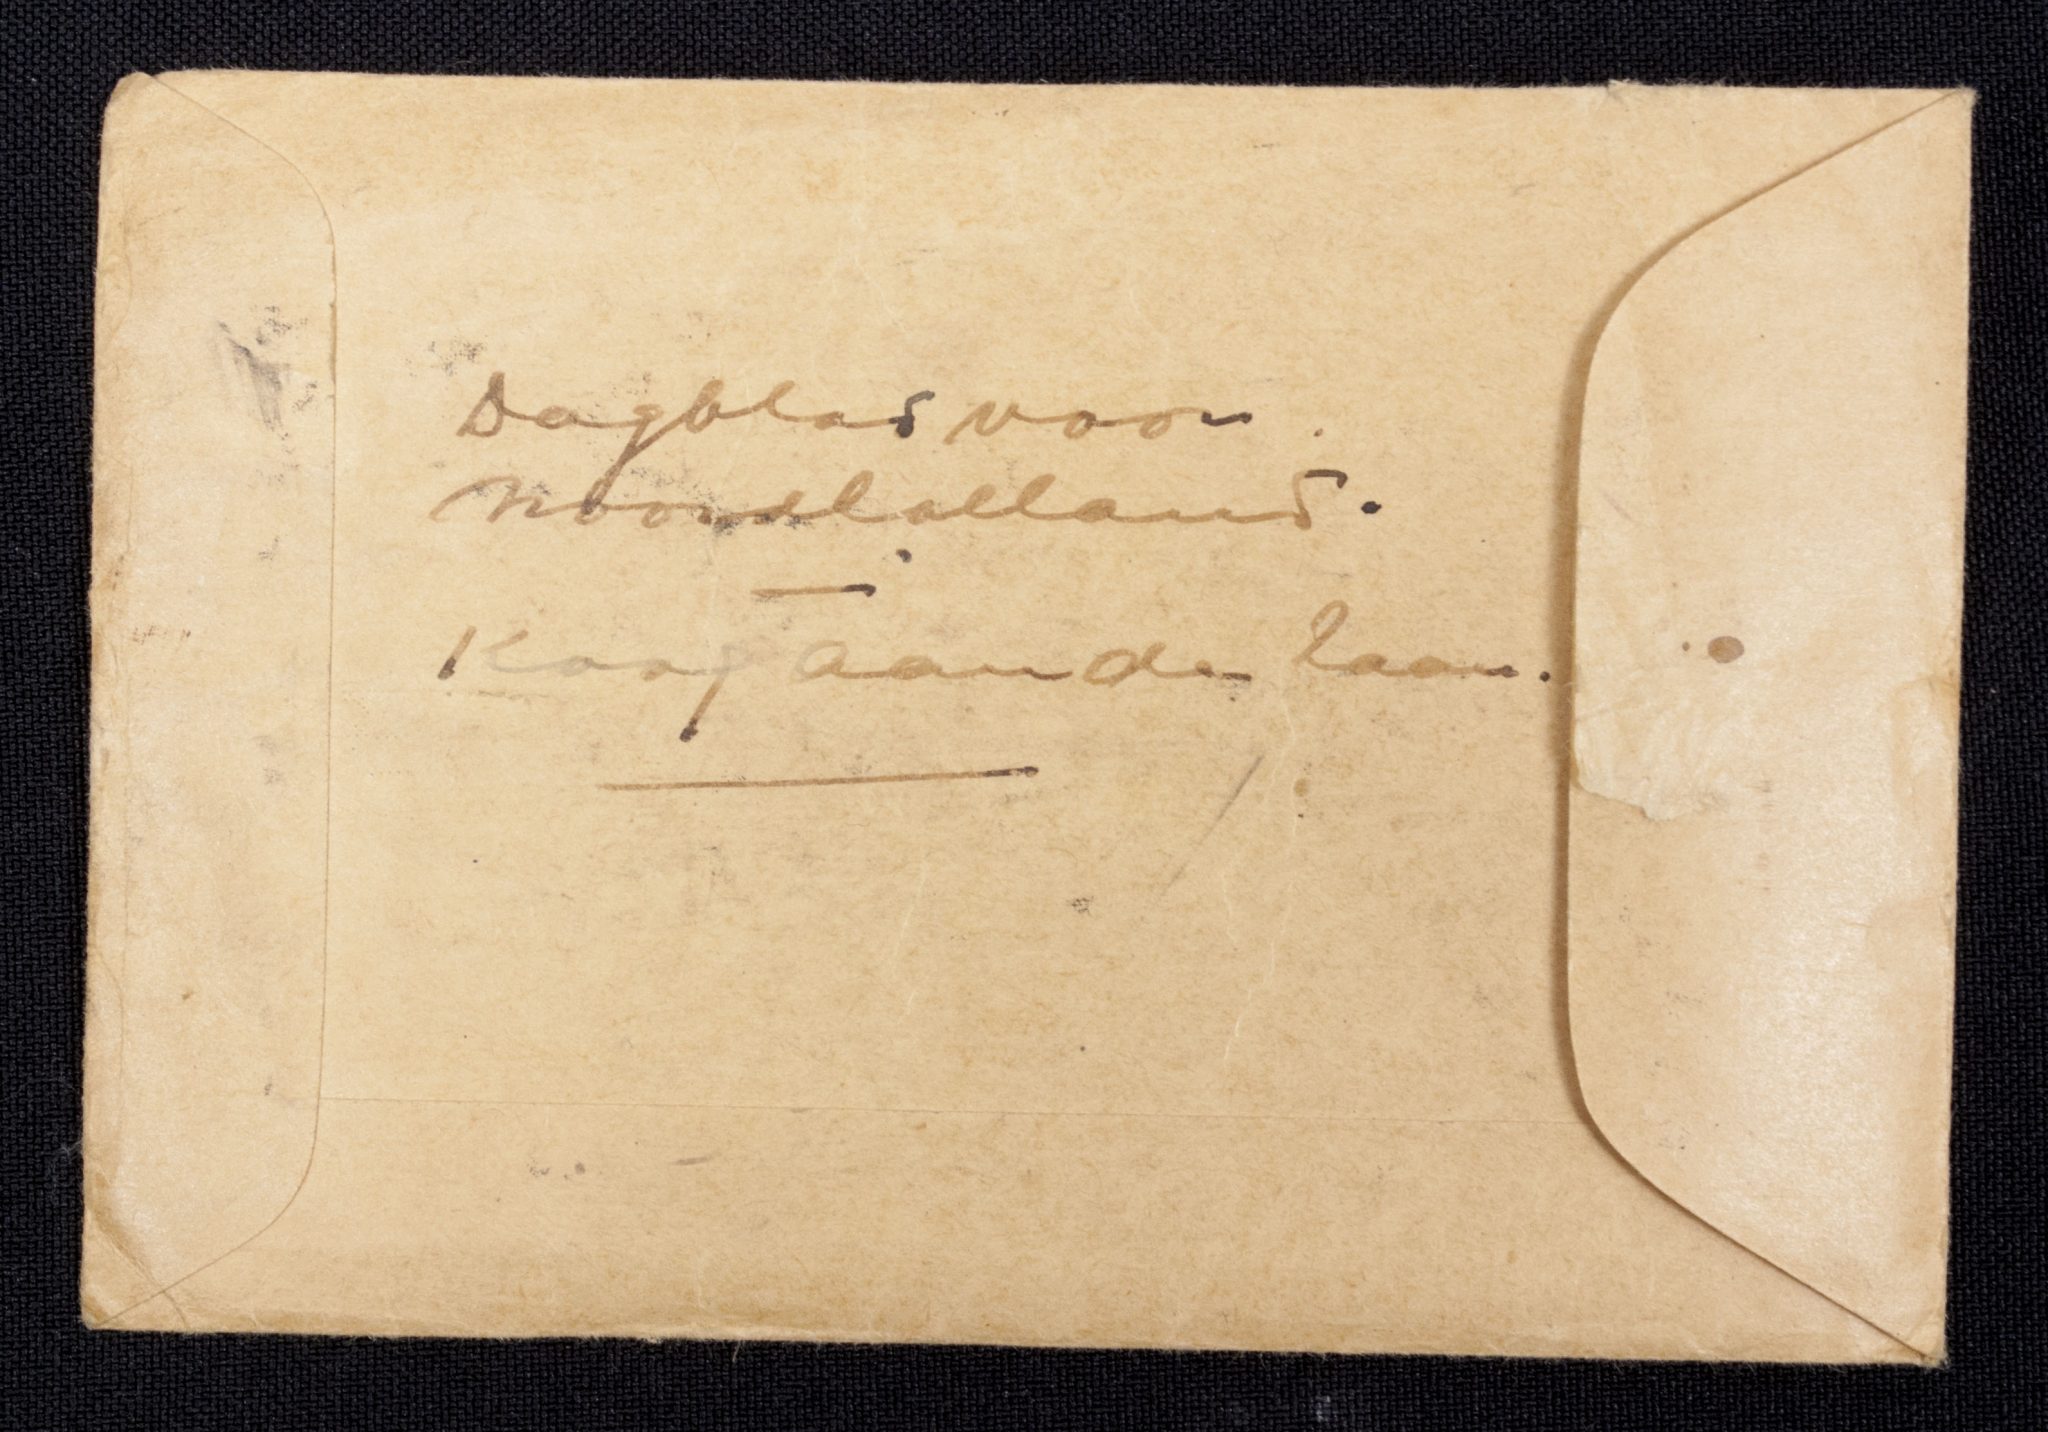 Dagblad voor
Noordholland.
Koog aan de Zaan.